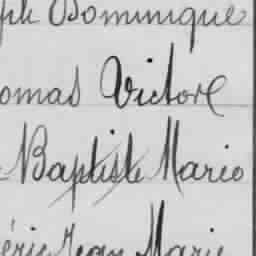 ph Dominique
omas Victor
Baptiste Mario
éric Jean Marie